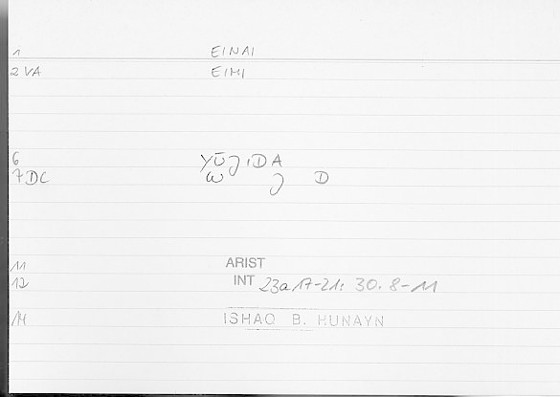 1 EINAI
2 VA EIMI
6 YŪǦIDA
7 DC W Ǧ D
11 ARIST
12 INT 23a17-21: 30.8-11
14 ISHAQ B. HUNAYN